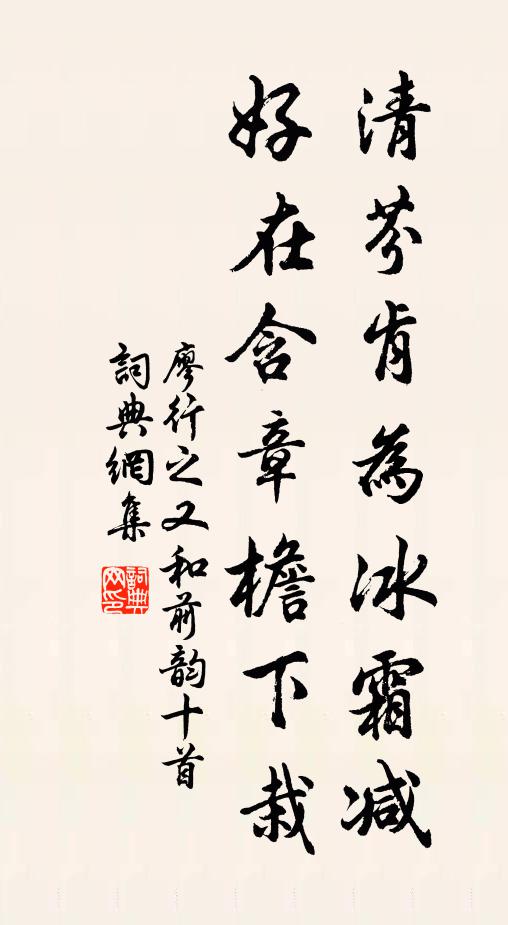 清芬肯為冰霜减
好在含章檐下栽
廖行之又和前韵十首
詞典網集
詞典网印